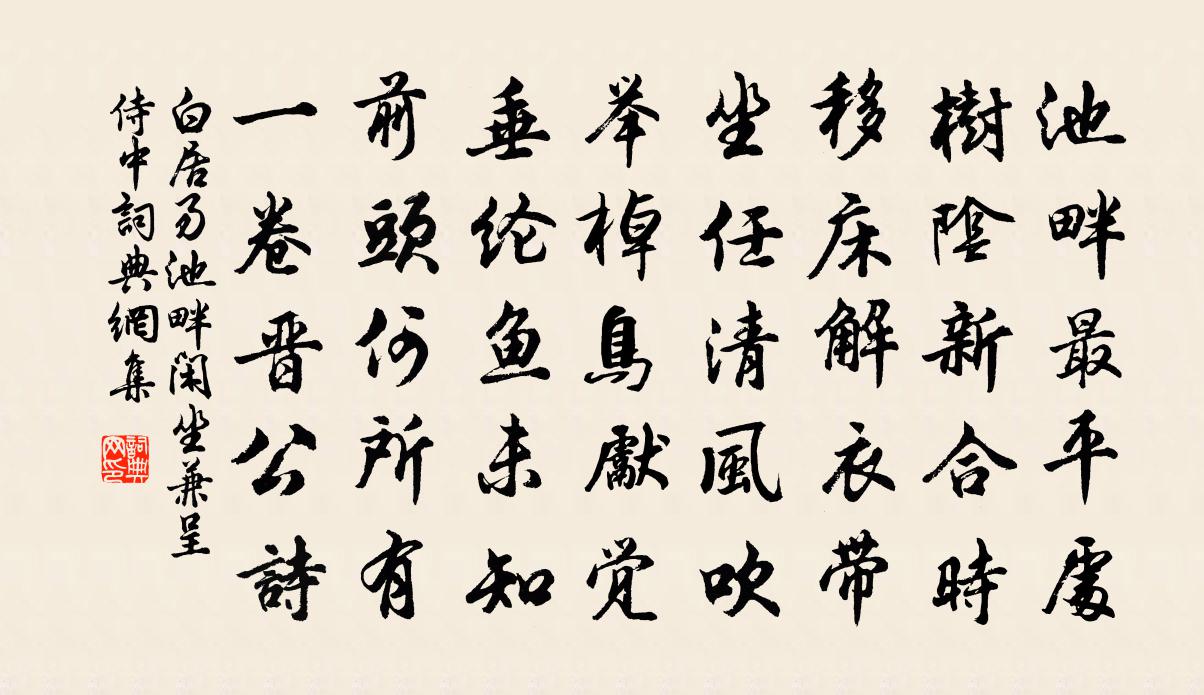 池畔最平處
樹陰新合時
移床解衣帶
坐任清風吹
举棹鳥獻觉
垂纶鱼未知
前頭何所有
一卷晋公詩
白居易池畔閑坐兼呈
侍中詞典網集
詞典
网印